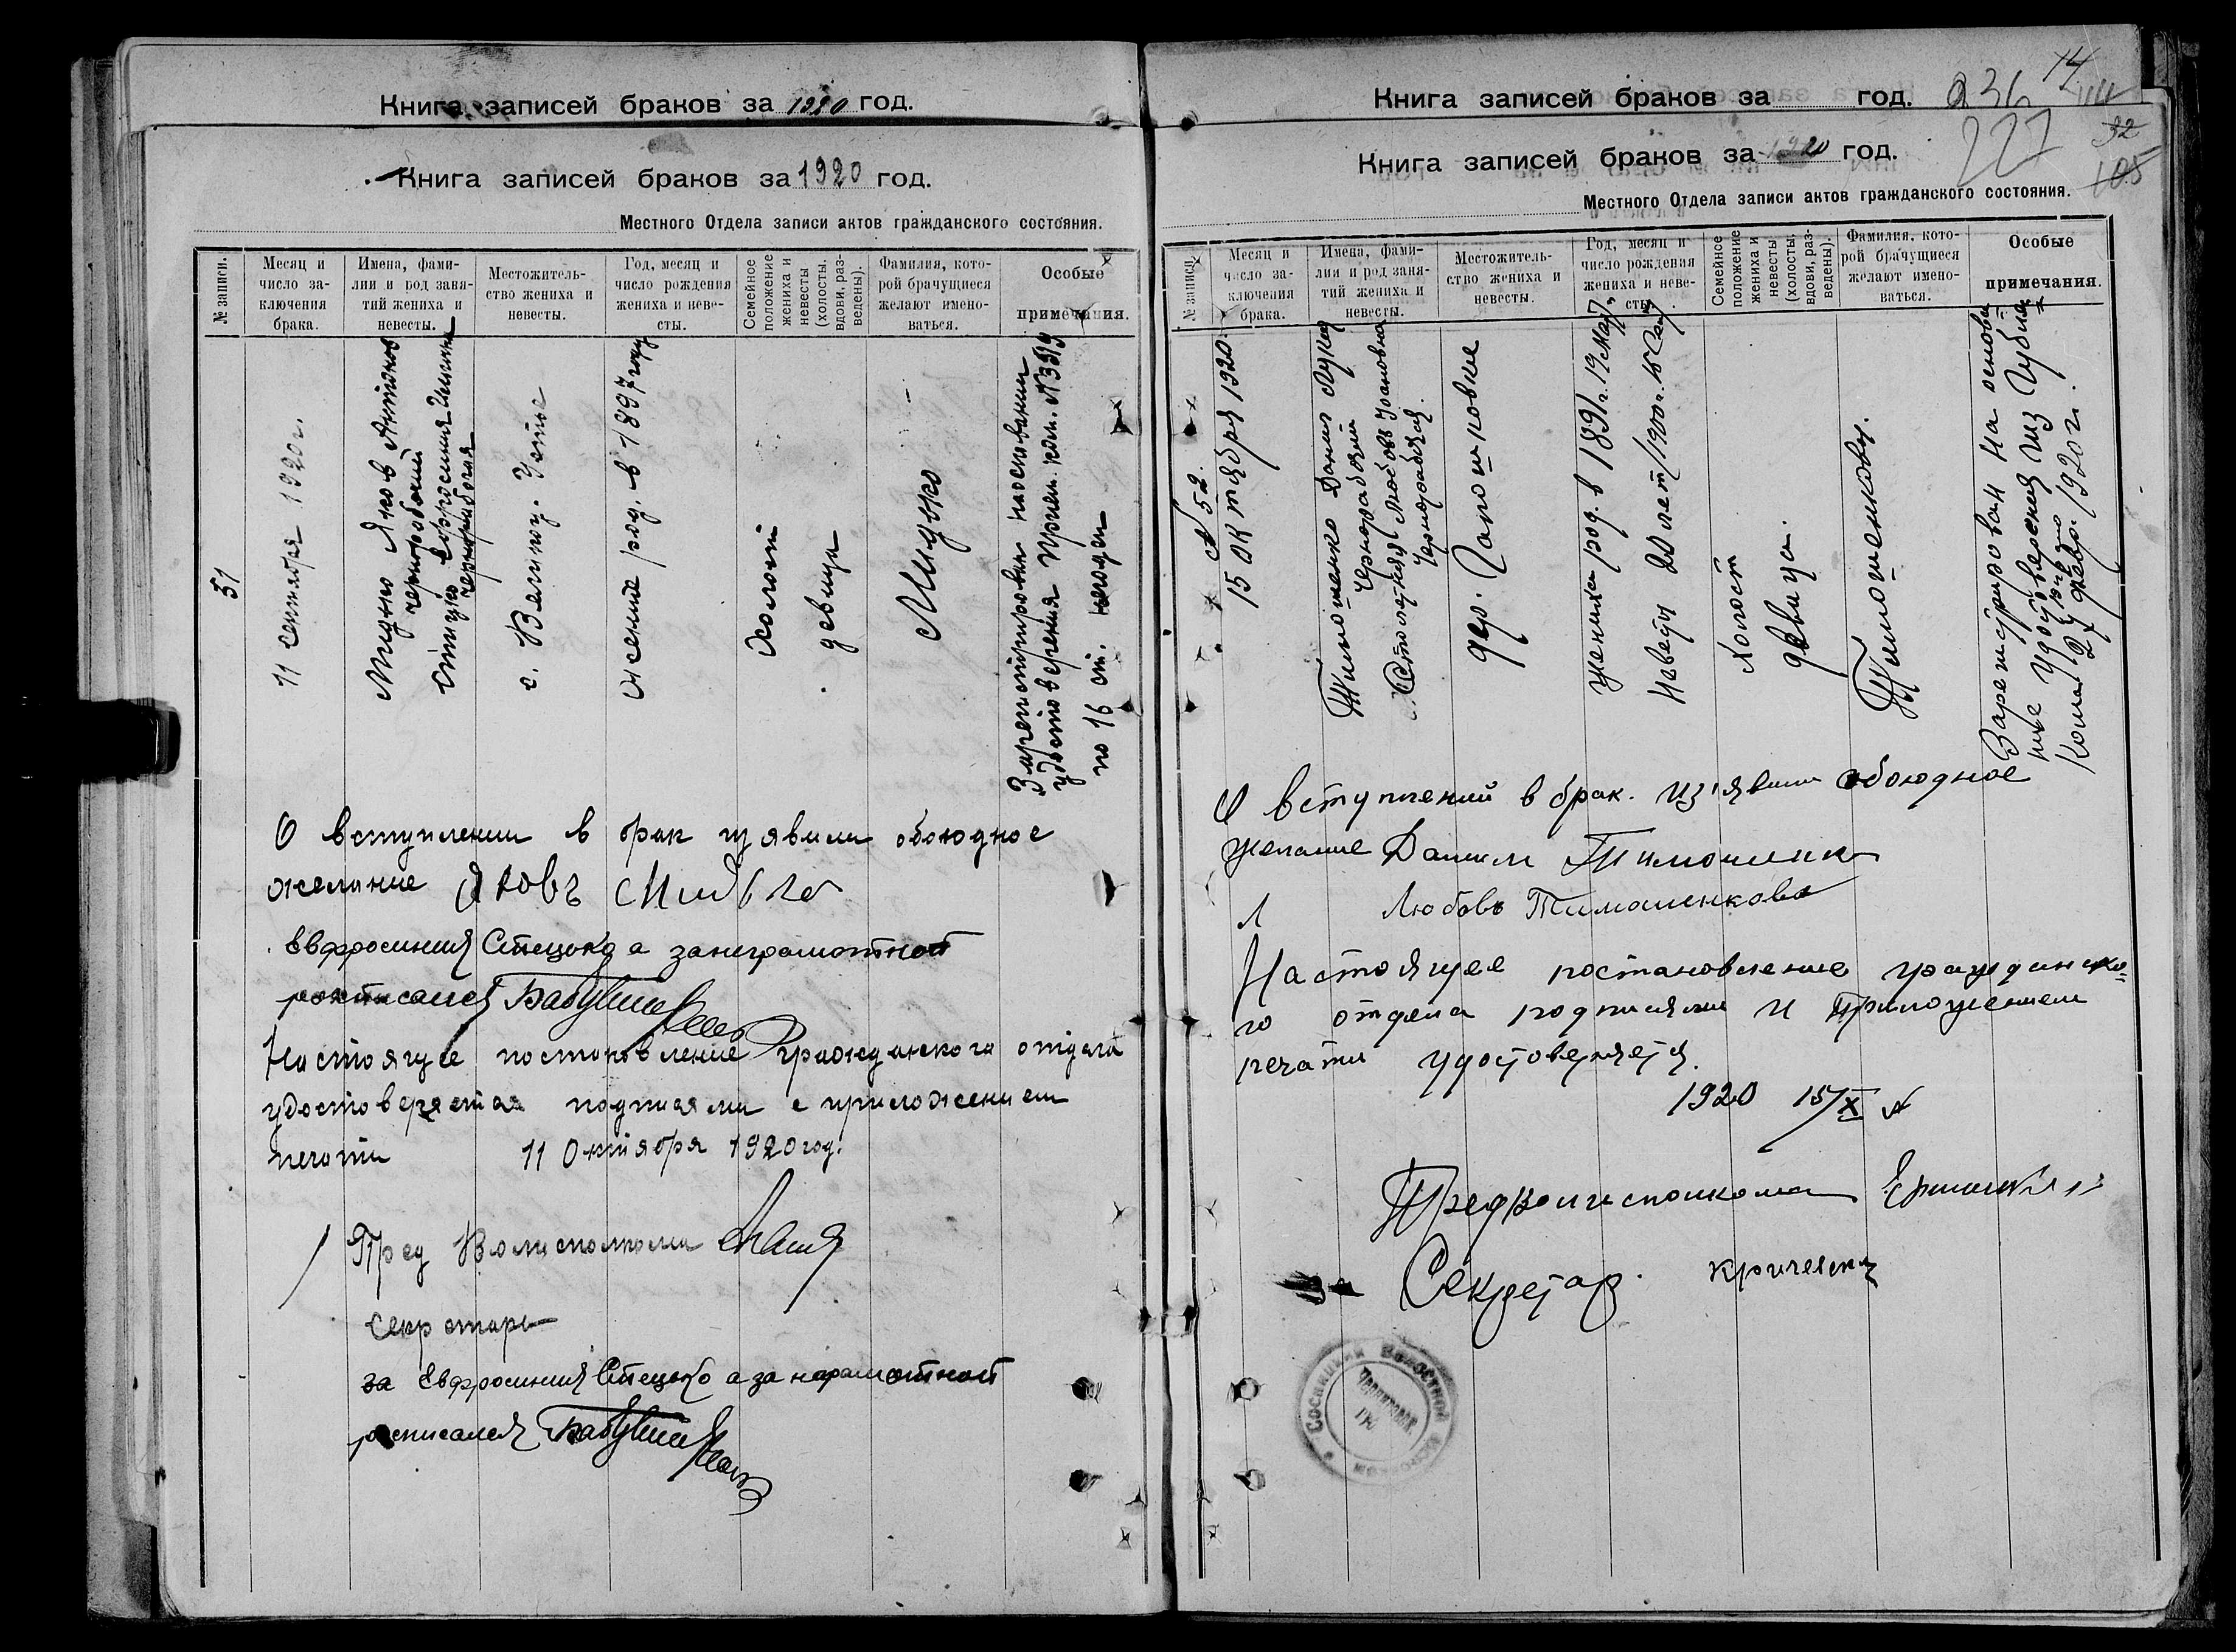 Книга записей браков за 1920 год.
Книга записей браков за 1920 год.
Местного Отдела записи актов гражданского состояния.
№ записи.
Месяц и число заключения брака.
Имена, фамилии и род занятий жениха и невесты.
Местожительство жениха и невесты.
Год, месяц и число рождения жениха и невесты.
Семейное положение жениха и невесты (холосты, вдовы, разведены).
Фамилия, которой брачущиеся желают именоваться.
Особые примечания.
51
11 сентября 1920 г.
Мидько Яков
чернорабочий
Стецко Ефросиния
чернорабочая
с. Велико. Устье
род. в 1897 году
Холост
девица
Мидько
Зарегистрирован на основании
удостоверения Прием. ком. № 3519
по 16 ст. негоден
О вступлении в брак изявили обоюдное
желание Яковъ Мидько
Евфросиния Стецко а за неграмотной
росписался
Настоящее постановление гражданского отдела
удостоверяется подписями с приложением
печати 11 Октября 1920 год.
Пред Волисполкома
Секретарь
за Евфросиния Стецко а за неграмотной
росписался
Книга записей браков за год.
236 14
Книга записей браков за 1920 год.
227 32
105
Местного Отдела записи актов гражданского состояния.
№ записи.
Месяц и число заключения брака.
Имена, фамилии и род занятий жениха и невесты.
Местожительство жениха и невесты.
Год, месяц и число рождения жениха и невесты.
Семейное положение жениха и невесты (холосты, вдовы, разведены).
Фамилия, которой брачущиеся желают именоваться.
Особые примечания.
№ 52
15 октября 1920
Тимошенко Данил Лукич
чернорабочий
Любовь Ивановна
Чернорабочая.
дер. Гапошковке
Жених род. в 1891 г. 19
Невесты 20 лет 1900 г. 15
Холост
девица.
Тимошенковы.
Зарегистрирован на основа
ние удостоверения из Губ
Ком 27 февр. 1920 г.
О вступлений в брак. из'явили обоюдное
желание Данил Тимошенко
Любовь Тимошенкова
Настоящее постановление гражданско
го отдела подписями и приложением
печати удостоверяется.
1920 15/X
Предволисполкома
За Секретар.
Сосницкий Волостной